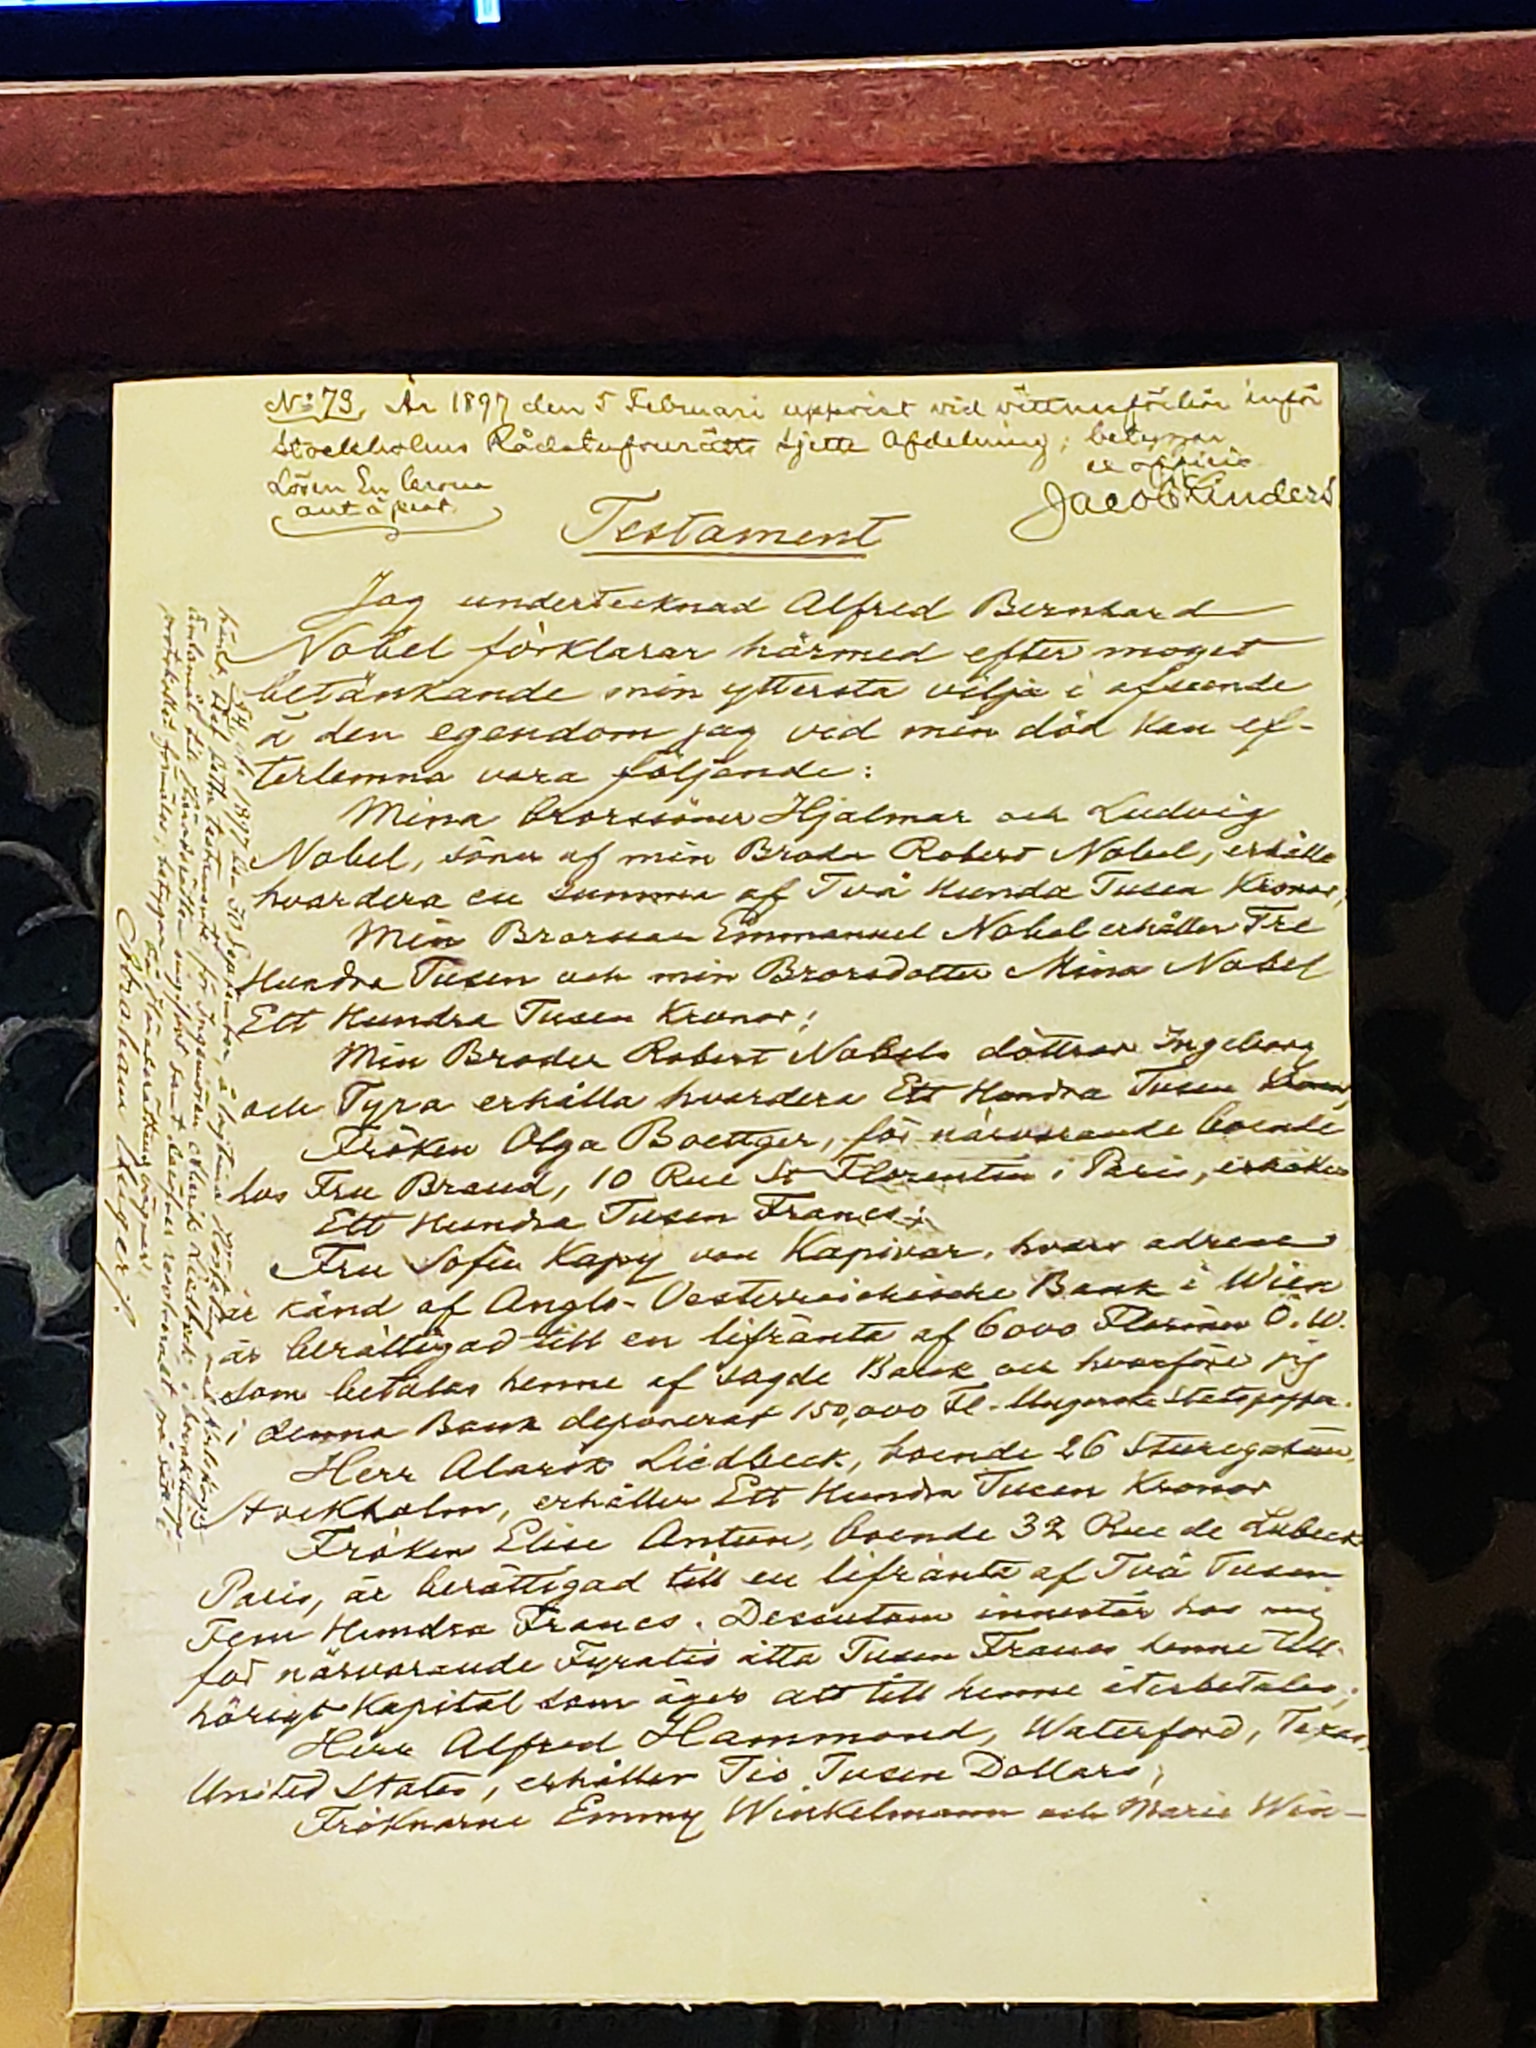 No 73. År 1897 den 5 Februari uppvist vid vittnesförhör inför
Stockholms Rådstufvurätts Sjette Afdelning; betygar
Lösen En krona ex officio
Jacob Kinders
Testament
Jag undertecknad Alfred Bernhard
Nobel förklarar härmed efter moget
betänkande min yttersta vilja i afseende
å den egendom jag vid min död kan ef-
terlemna vara följande:
Mina brorssöner Hjalmar och Ludvig
Nobel, söner af min Broder Robert Nobel, erhålla
hvardera en summa af Två Hundra Tusen Kronor;
Min Brorson Emmanuel Nobel erhåller Tre
Hundra Tusen och min Brorsdotter Mina Nobel
Ett Hundra Tusen Kronor;
Min Broder Robert Nobels döttrar Ingeborg
och Tyra erhålla hvardera Ett Hundra Tusen Kronor,
Fröken Olga Boettger, för närvarande boende
hos Fru Brand, 10 Rue St Florentin i Paris, erhåller
Ett Hundra Tusen Francs;
Fru Sofie Kapy von Kapivar, hvars adress
är känd af Anglo-Oesterreichische Bank i Wien
är berättigad till en lifränta af 6000 Floriner Ö.W.
som betalas henne af sagde Bank och hvarföre jag
i denna Bank deponerat 150,000 Fl. Ungerska Statspapper.
Herr Alarik Liedbeck, boende 26 Sturegatan,
Stockholm, erhåller Ett Hundra Tusen Kronor
Fröken Elise Antun, boende 32 Rue de Lubeck
Paris, är berättigad till en lifränta af Två Tusen
Fem Hundra Francs. Dessutom innestår hos mig
för närvarande Fyratio åtta Tusen Francs henne till-
hörigt Kapital som äger att till henne återbetalas;
Herr Alfred Hammond, Waterford, Texas,
United States, erhåller Tio Tusen Dollars;
Fröknarne Emmy Winkelmann och Marie Win-
1897 den 30 September, å lagtima
detta testamente för Ingeniören Alarik Liedbeck
protokollet förmäler, betygar
På Häradsrättens vägnar:
Abraham Unger